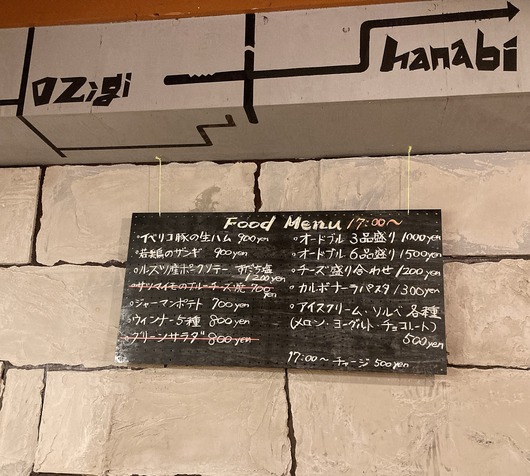 ozigi
hanabi
Food Menu 17:00～
・イベリコ豚の生ハム 900yen
・若鶏のザンギ 900yen
・ルスツ産ポークソテー すだち塩
1200yen
・サツマイモのブルーチーズ焼 700
yen
・ジャーマンポテト 700yen
・ウィンナー5種 800yen
・グリーンサラダ 800yen
・オードブル 3品盛り 1000yen
・オードブル 6品盛り 1500yen
・チーズ盛り合わせ 1200yen
・カルボナーラパスタ 1300yen
・アイスクリーム・ソルベ 各種
(メロン・ヨーグルト・チョコレート)
500yen
17:00～ チャージ 500yen